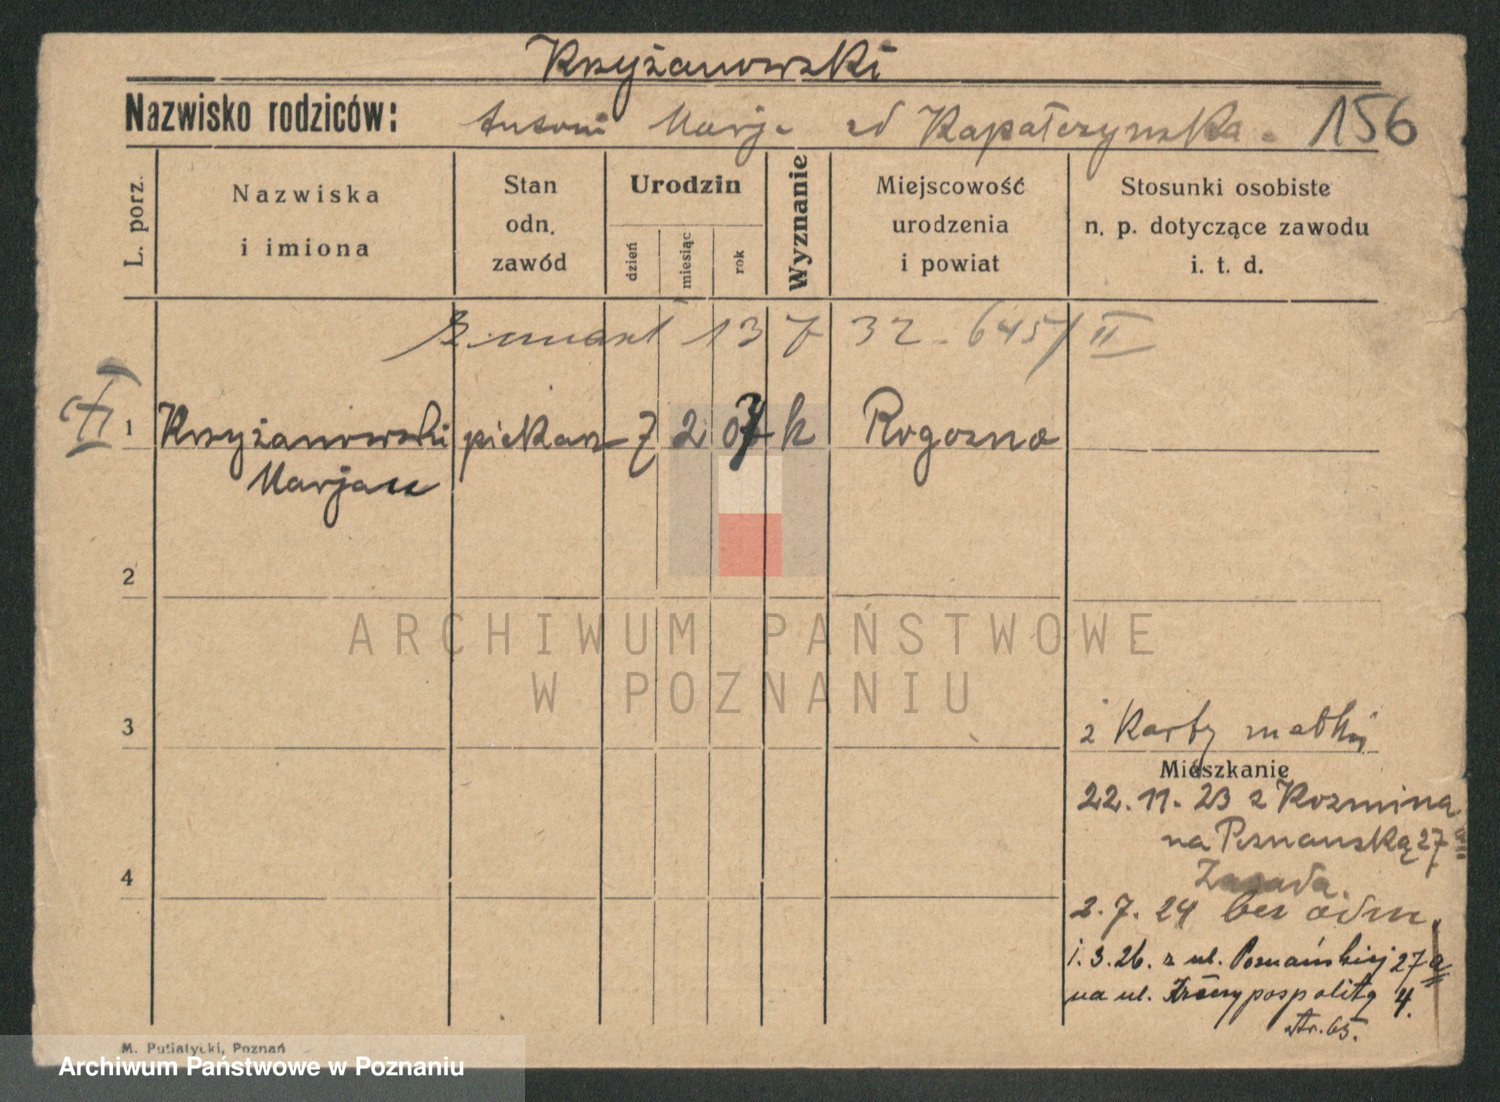 Krzyżanowski
Nazwisko rodziców: Antoni Marja zd Kapałczyńska. 156
L. porz.
Nazwiska
i imiona
Stan
odn.
zawód
Urodzin
dzień
miesiąc
rok
Wyznanie
Miejscowość
urodzenia
i powiat
Stosunki osobiste
n. p. dotyczące zawodu
i. t. d.
zmarł 13 7 32 - 645/II
1 Krzyżanowski piekarz 7 2 07 k Rogozno
Marjan
2
3
z Karty matki
Mieszkanie
22. 11. 23 z Kozmina
na Poznanską 27
4
2. 7. 24 bez odm.
1. 3. 26. z ul. Poznańskiej 27a
na ul. Rzeczypospolitą 4.
str. 65.
M. Putiatycki, Poznań
ARCHIWUM PAŃSTWOWE
W POZNANIU
Archiwum Państwowe w Poznaniu